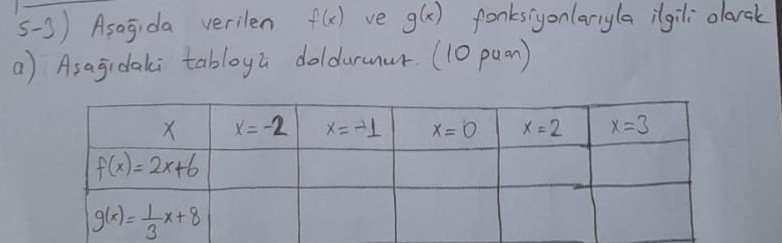 S-3) Aşağıda verilen f(x) ve g(x) fonksiyonlarıyla ilgili olarak
a) Aşağıdaki tabloyu doldurunuz. (10 puan)
x x=-2 x=-1 x=0 x=2 x=3
f(x)=2x+6
g(x)=1/3x+8